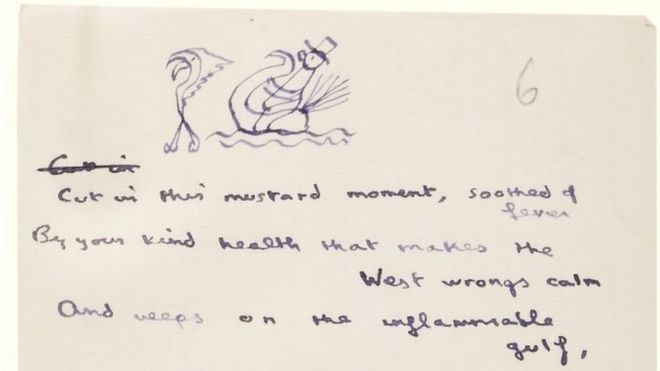 6
Cut in
Cut in this mustard moment, soothed of
fever
By your kind health that makes the
West wrongs calm
And weeps on the inflammable
gulf,